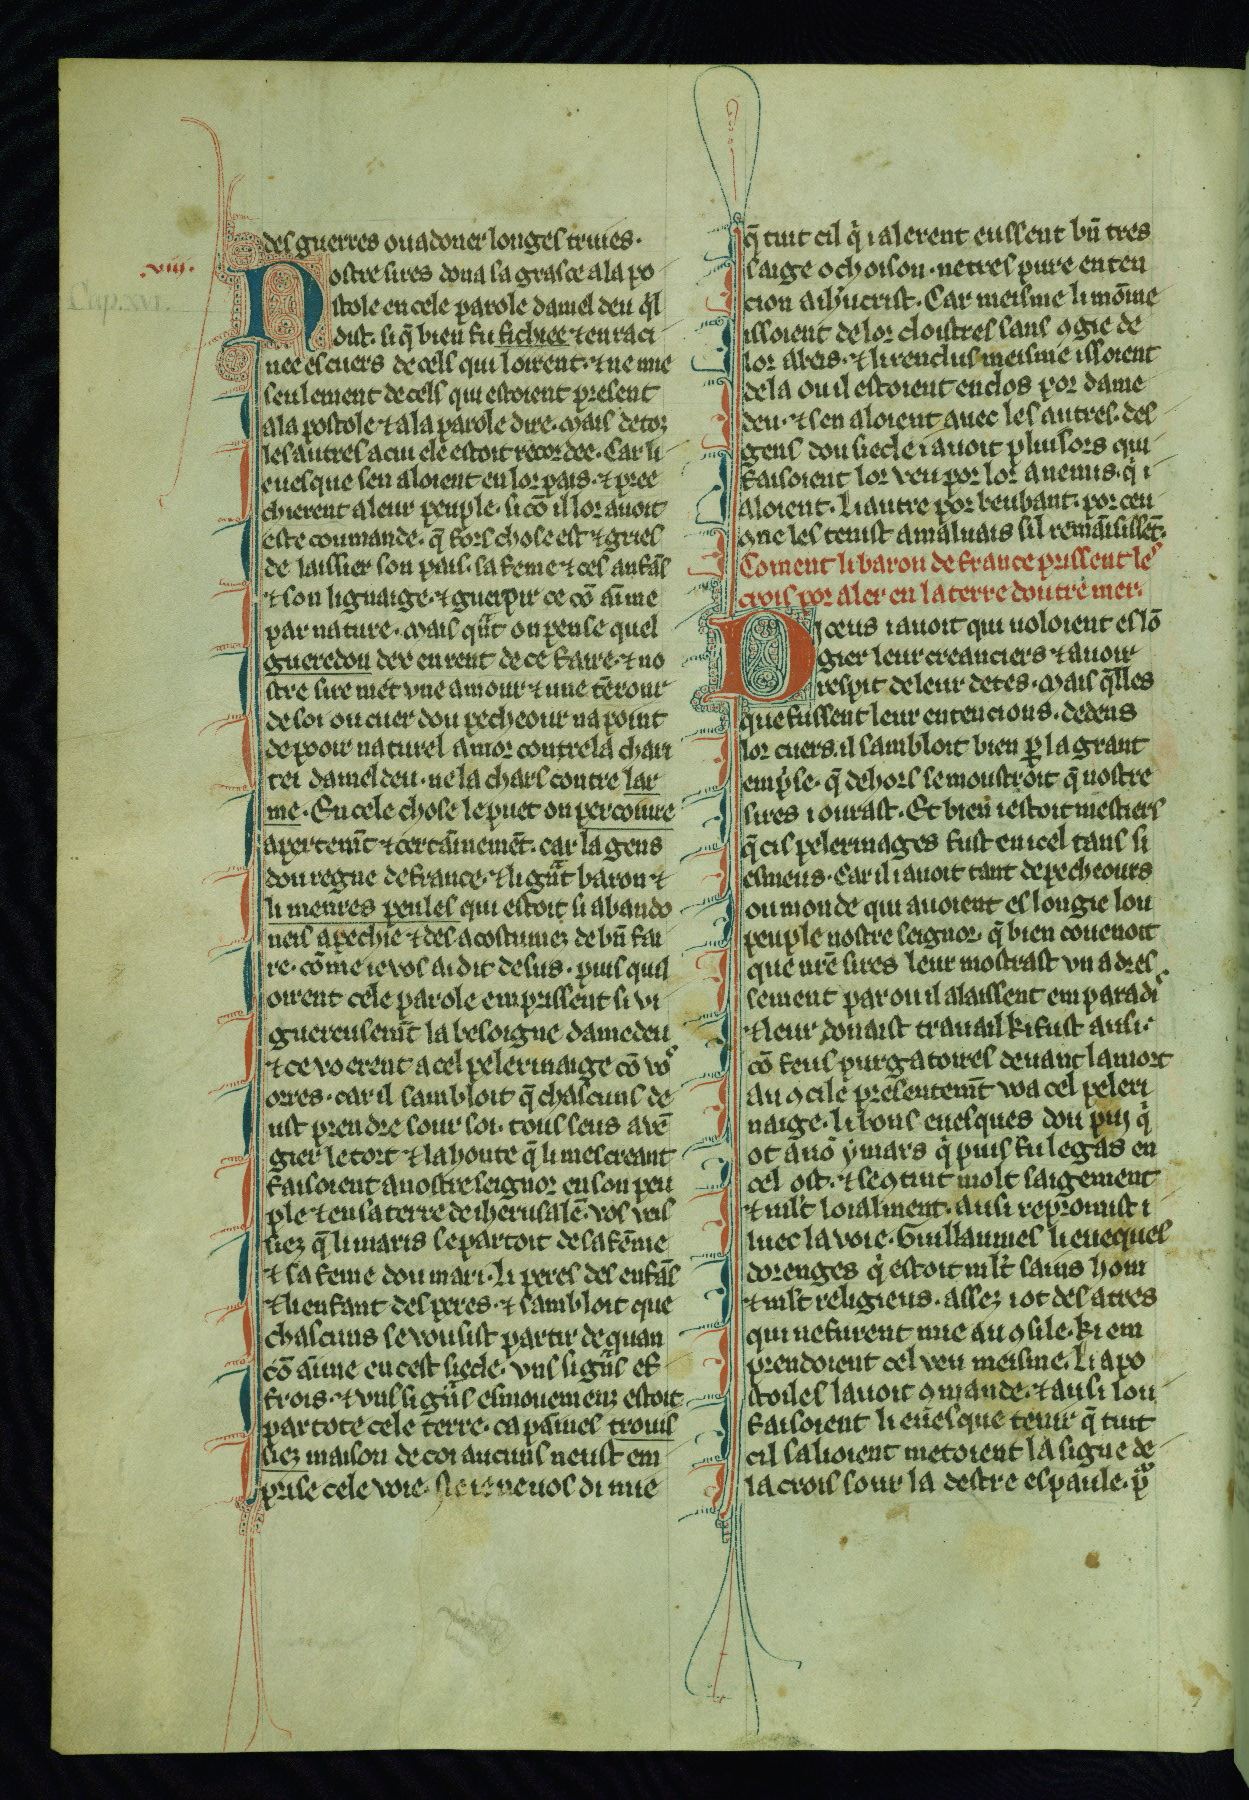 des guerres ou a doner longes truies.
.viii.
Cap. xvi.
Nostre sires dona sa grasce a la po
stole en cele parole damel deu q̃l
dist. si q̃ bien fu fichiee ⁊ enraci
nee es cuers de cels qui loirent. ⁊ ne mie
seulement de cels qui estoient present
a la postole ⁊ a la parole dire. mais de toz
les autres a cui ele estoit recordee. Car li
euesque sen aloient en lor pais. ⁊ pree
chierent a leur peuple. si cō il lor auoit
este coumande. q̃ fors chose est ⁊ griés
de laissier son pais. sa feme ⁊ ces anfãs
⁊ son lignaige. ⁊ guerpir ce cō aīme
par nature. mais qũt on pense quel
gueredon dex en rent de ce faire. ⁊ no
stre sire met vne amour ⁊ une tērour
de soi ou cuer dou pecheour na point
de pooir naturel amor contre la chari
tei damel deu. ne la chars contre lar
me. En cele chose le puet on percoiure
apertem̄t ⁊ certāinemēt. car la gens
dou regne de france. ⁊ li grãt baron ⁊
li menres peules qui estoit si abando
neis a pechie ⁊ des acostumez de bn̄ fai
re. cōme ie vos ai dit desus. puis quil
oirent cele parole emprissent si vi
guereusem̄t la besoigne damedeu
⁊ ce voerent a cel pelerinaige cō vos
orres. car il sambloit q̃ chascuns de
ust prendre sour soi. tous seus a vē
gier le tort ⁊ la honte q̃ li mescreant
faisoient a nostre seignor en son peu
ple ⁊ en sa terre de iherusalē. vos veis
siez q̃ li maris se partoit de sa fēme
⁊ sa feme dou mari. li peres des enfãs
⁊ li enfant des peres. ⁊ sambloit que
chascuns se vousist partir de quan
cō aīme en cest siecle. vns si grãs ef
frois. ⁊ vns si grãs esmouemenz estoit
par tote cele terre. ca paīnes trouis
siez maison de coi aucuns neust em
prise cele voie. Ne ie ne uos di mie
q̃ tuit cil q̇ i alerent eussent bn̄ tres
saige ochoison. ne tres pure enten
cion a ihũcrist. Car meisme li mōme
issoient de lor cloistres sans ꝯgie de
lor abeis. ⁊ li renclus meisme issoient
de la ou il estoient enclos por dame
deu. ⁊ sen aloient auec les autres. des
gens dou siecle i auoit pluisors qui
faisoient lor veu por lor anemis. q̇ i
aloient. li autre por beubant. por ceu
ꝯ ne les tenist a mãluais sil remãisissēt.
Coment li baron de france prissent les
crois por aler en la terre doutre mer.
Dicens i auoit qui uoloient eslō
gier leur creanciers ⁊ auoir
respit de leur detes. mais q̃lles
que fussent leur entencious. dedens
lor cuers. il sambloit bien p̱ la grant
emp̃se. q̃ dehors se moustroit q̃ nostre
sires i ourast. Et bien i estoit mestiers
q̃ cis pelerinages fust en icel tans si
esmeus. Car il i auoit tant de pecheours
ou monde qui auoient eslongie lou
peuple nostre seignor. q̃ bien couenoit
que nr̄e sires leur mostrast vn adres
sement par ou il alaissent em paradis
⁊ leur donaist trauail ki fust ausi.
cō feus purgatoires deuant la mort
au ꝯcile presentem̄t voa cel peleri
naige. li bons euesques dou puj q̇
ot a nō ymars q̇ puis fu legas en
cel ost. ⁊ se ꝯtuit molt saigement
⁊ ml̃t loialment. ausi repromist i
luec la voie. Guillaumes li eueques
dorenges q̇ estoit ml̃t sains hom
⁊ ml̃t religieus. assez i ot des atres
qui ne furent mie au ꝯsile. ki em
prendoient cel veu meisme. li apo
stoiles lauoit ꝯmande. ⁊ ausi lou
faisoient li euesque tenir q̃ tuit
cil salioient metoient la signe de
la crois sour la destre espaule. p̃